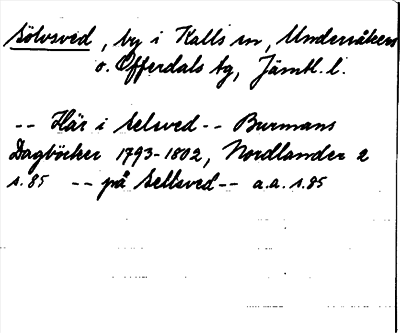 Sölvsved, by i Kalls sn, Undersåkers
o. Offerdals tg, Jämtl. l.
-- Här i Selsved -- Burmans
Dagböcker 1793-1802, Nordlander 2
s. 85 -- på Sellsved -- a.a. s. 85